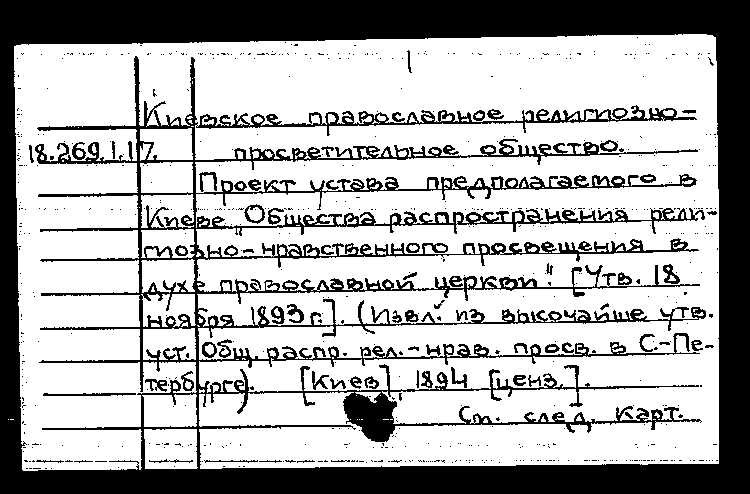 Киевское православное религиозно-
18.269.1.17. просветительное общество.
Проект устава предполагаемого в
Киеве „Общества распространения рели-
гиозно-нравственного просвещения в
духе православной церкви". [Утв. 18
ноября 1893 г.]. (Извл. из высочайше утв.
уст. Общ. распр. рел.-нрав. просв. в С.-Пе-
тербурге). [Киев], 1894 [ценз.].
См. след. карт.